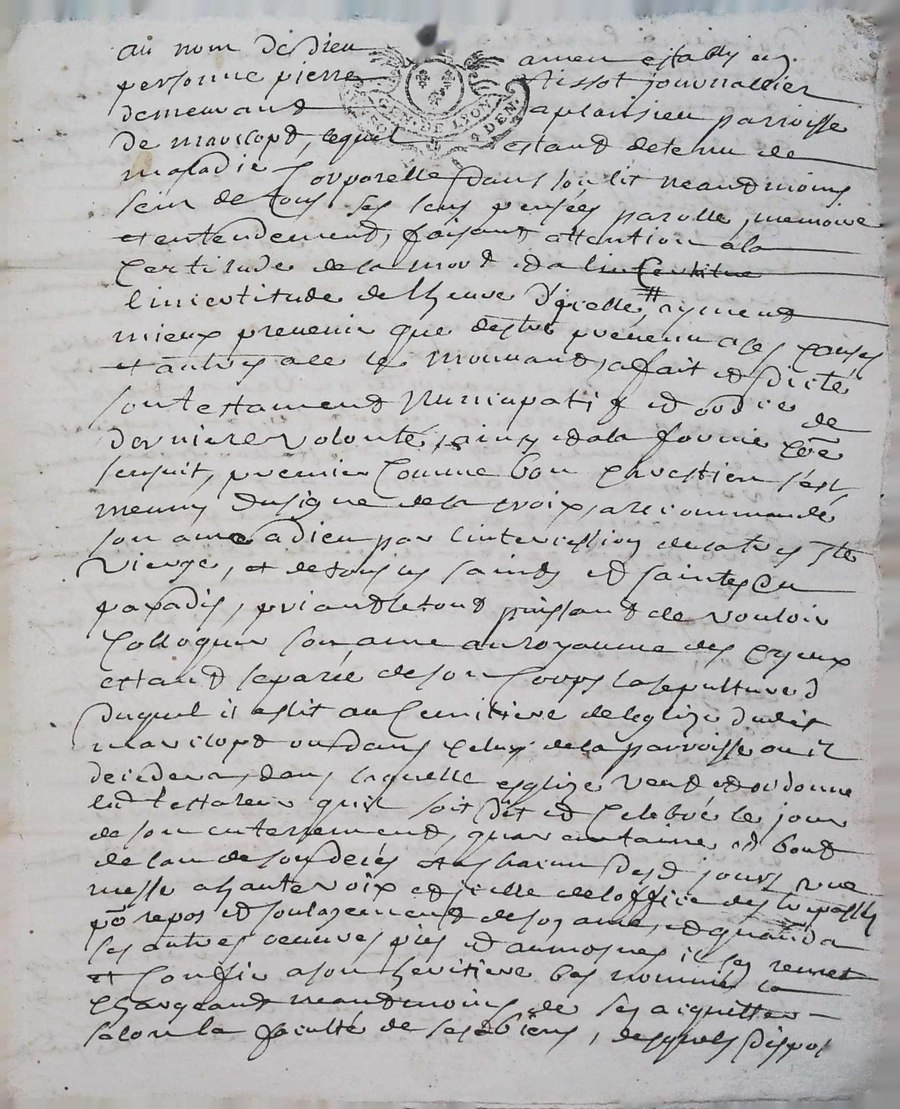 au nom de dieu amen estably en
personne pierre tissot journallier
demeurant a plansieu parroisse
GEN. DE LYON
DEN.
de mariclopt, lequel estand detenu de
maladie Corporelle dans son lit neandmoins
sein de tous ses sens pensées parolle, memoire
et entendement, faisant attention a la
Certitude de la mord et a lincertitue
lincertitude de lheure d'icelle, # ayment
mieux prevenir que destre prevenu a ses causes
et autres a ce le mouvand, a fait et dicté
son testament nuncupatif et ordce de
derniere volonté, ainsy et a la forme que
sensuit, premier Comme bon chrestien s'est
meuny du signe de la croix, a recommandé
son ame a dieu par lintercession de la tres Ste
Vierge, et de tous les saints et saintes du
paradis, priand le toud puissand de vouloir
Colloquer son ame au royaume des Cyeux
estand separée de son Corps la sepulture d
duquel il eslit au Cemitiere de leglize dudit
mariclopt ou dans celuy de la parroisse ou il
decedera, dans laquelle esglize veud et ordonne
led testateur quil soit dit et Celebré le jour
de son enterrement, quarantaine et boud
de lan de son decés et a chacun desd jours une
messe a haute voix et icelle de loffice des trepassés
po repos et soulagement de son ame, et quand a
ses autres oeuvres pies et aumosnes il sen remet
et Confie a son heritiere bas nommée la
Chargeand neandmoins de sen aquitter
selon la faculté de ses biens, desquels dispos